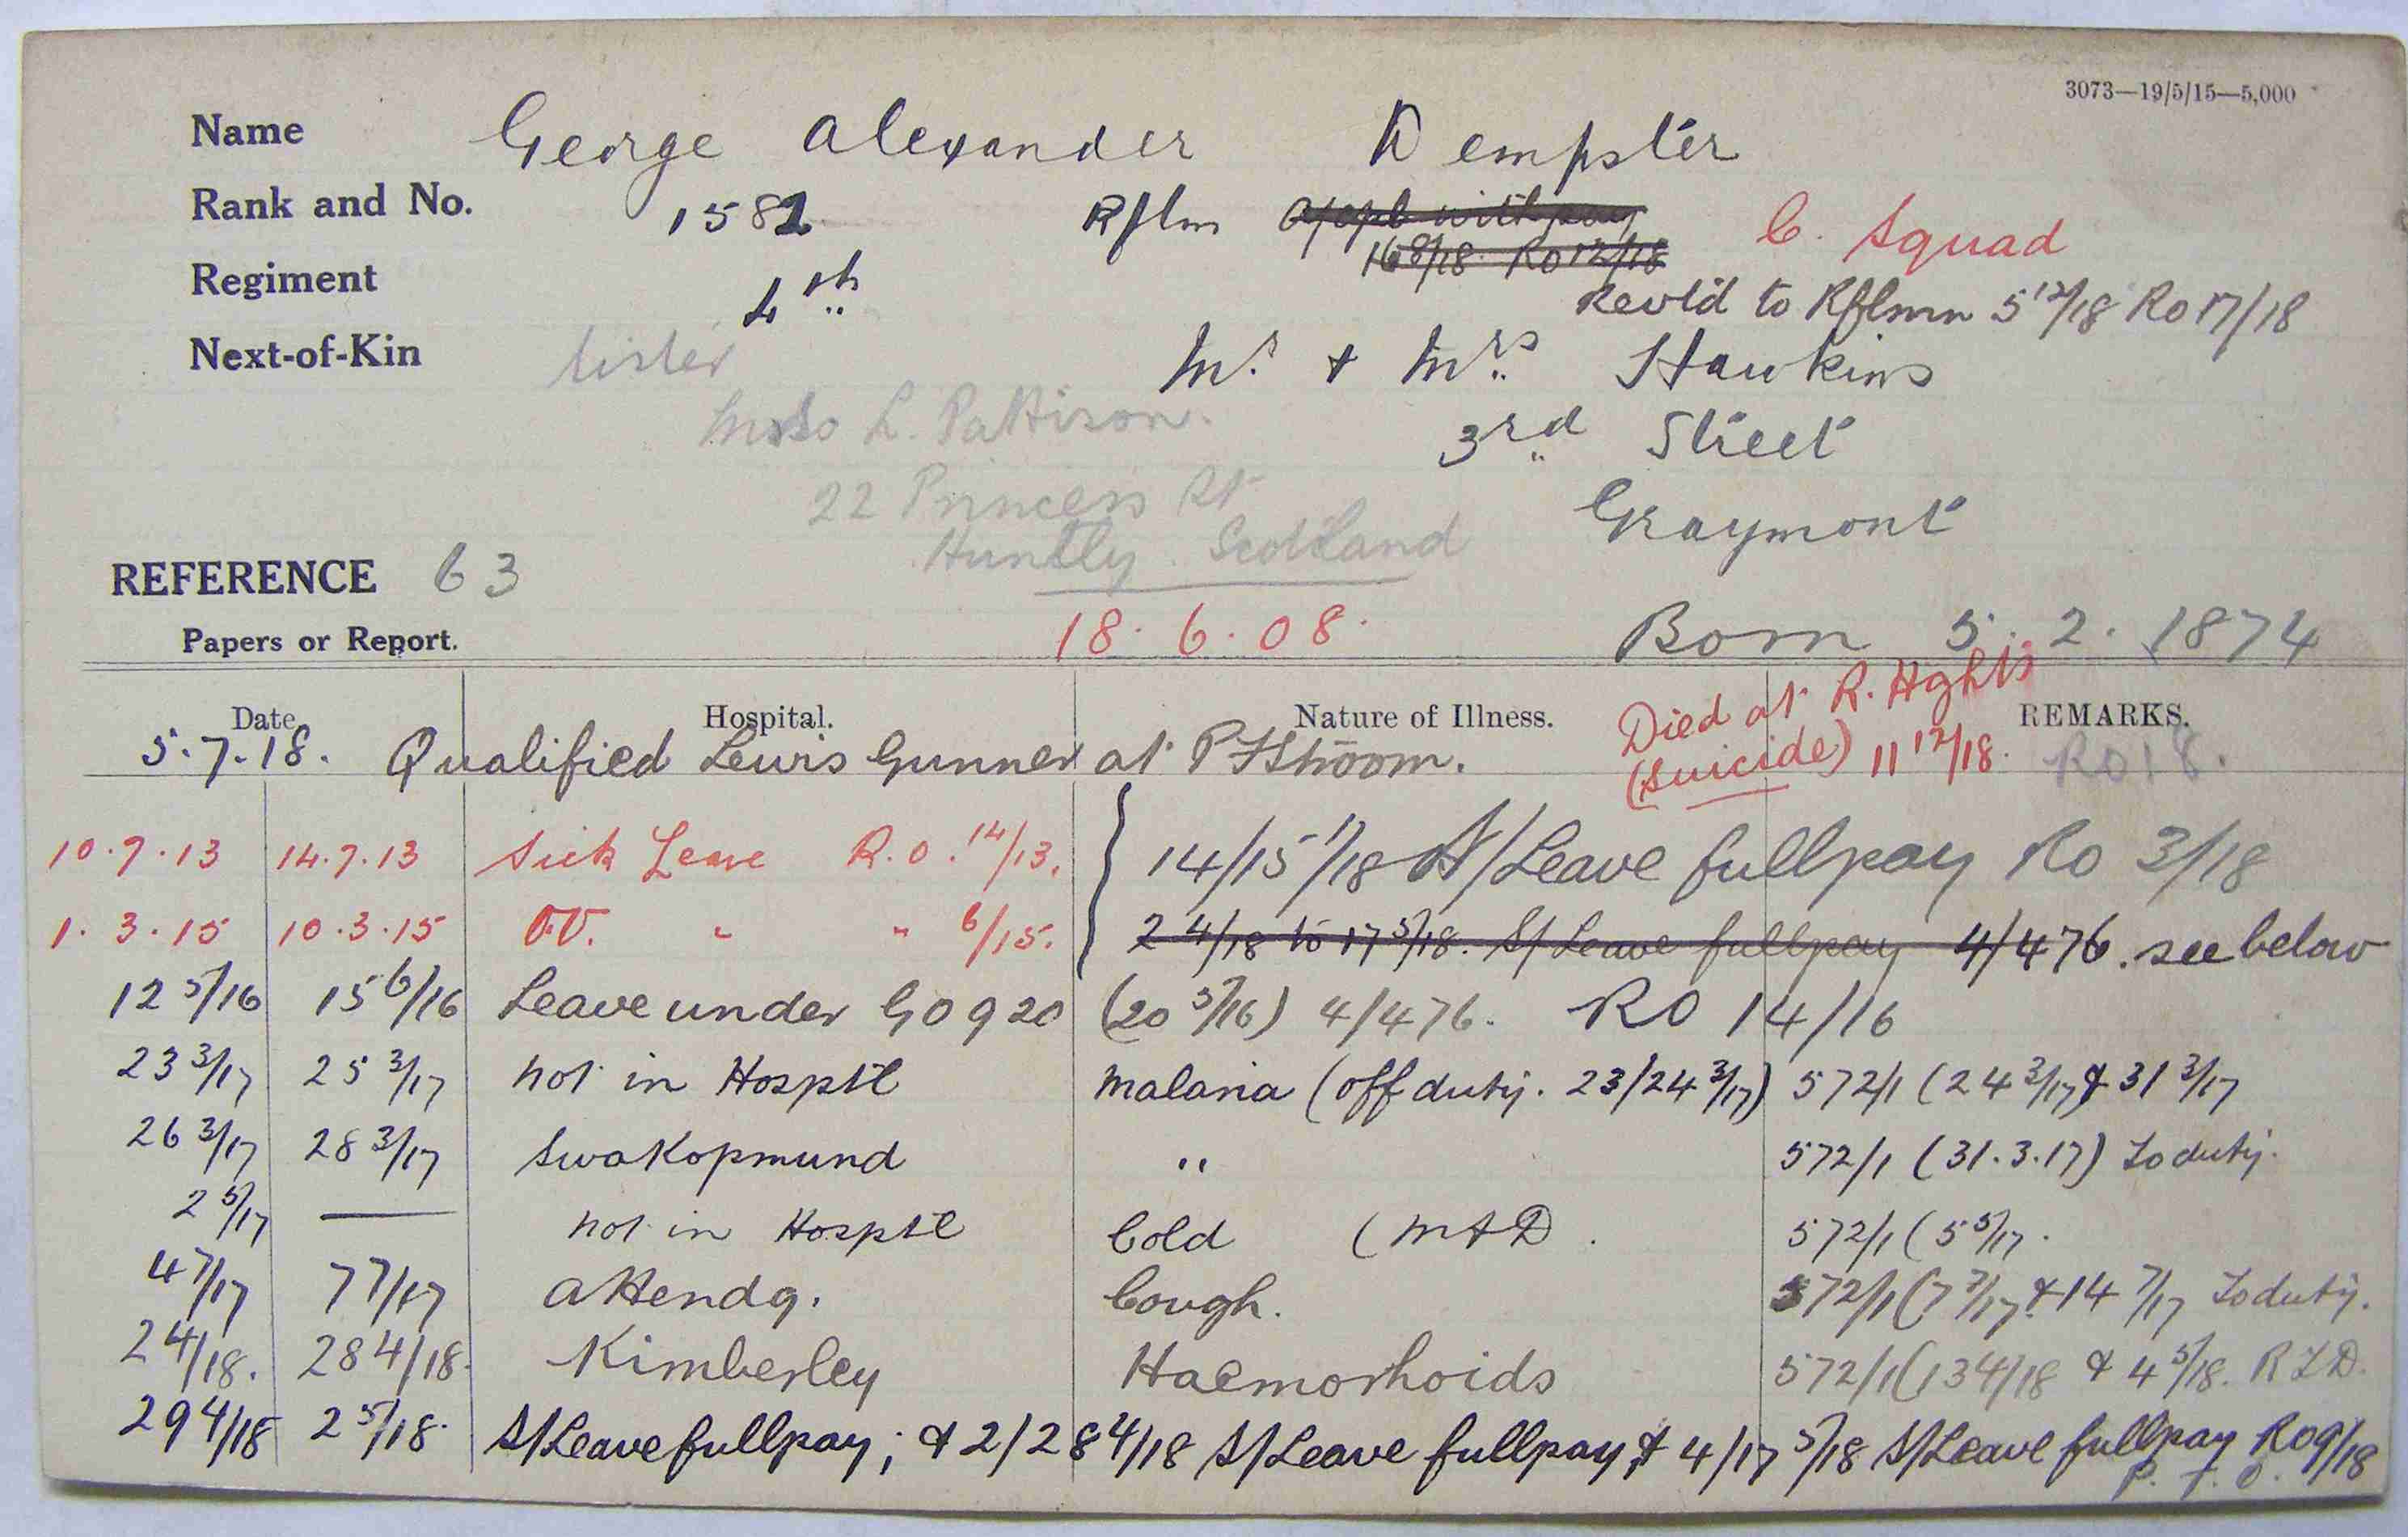 3073—19/5/15—5,000
Name George Alexander Dempster
Rank and No. 1581 Rflm a/cpl with pay C. Squad
16 8/18 Ro 12/18
Regiment 4th Revt'd to Rflmn 5 12/18 Ro 17/18
Next-of-Kin Sister Mr. & Mrs. Hawkins
L. Pattison. 3rd Street
22 Princess St Graymont
Huntly Scotland
REFERENCE 63
18.6.08. Born 5.2.1874
Papers or Report.
Died at R. Hghts
(suicide) 11 12/18.
Date Hospital. Nature of Illness. REMARKS.
5.7.18. Qualified Lewis Gunner at P'Fstroom. RO 18.
10.7.13 14.7.13 Sick Leave R.O. 14/13. 14/15 1/18 A/Leave fullpay Ro 3/18
1.3.15 10.3.15 " " 6/15. 2 4/18 to 17 5/18. S/Leave fullpay 4/476. see below
12 5/16 15 6/16 Leave under GO 920 (20 5/16) 4/476. RO 14/16
23 3/17 25 3/17 not in Hosptl malaria (off duty. 23/24 3/17) 572/1 (24 3/17 & 31 3/17
26 3/17 28 3/17 Swakopmund " 572/1 (31.3.17) To duty.
2 5/17 — not in Hosptl Cold (M & D. 572/1 (5 5/17.
4 7/17 7 7/17 attendg. Cough. 572/1 (7 7/17 & 14 7/17 To duty.
2 4/18. 28 4/18. Kimberley Haemorhoids 572/1 (13 4/18 & 4 5/18. R T D.
29 4/18 2 5/18. S/Leave fullpay; & 2/28 4/18 S/Leave fullpay & 4/17 5/18 S/Leave fullpay Ro 9/18
P. T. O.